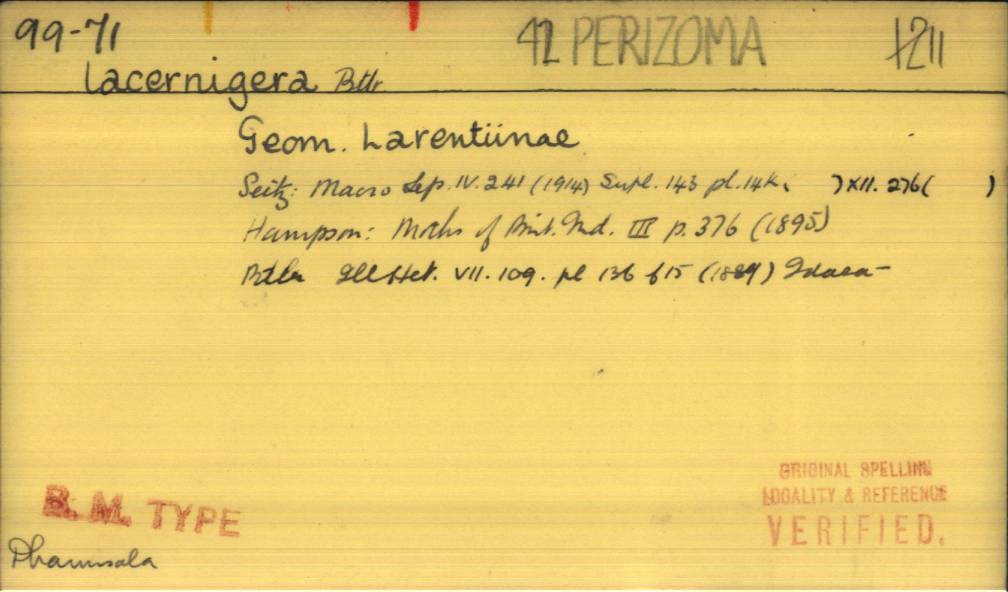 99-71 42 PERIZOMA 1211
lacernigera Btlr
Geom. Larentiinae
Seitz: Macro Lep. IV. 241 (1914) Supl. 143 pl. 14k. ) XII. 276 ( )
Hampson: Moths of Brit. Ind. III p. 376 (1895)
Btlr Ill Het. VII. 109. pl 136 f 15 (1889) Idaea -
ORIGINAL SPELLING
LOCALITY & REFERENCE
VERIFIED.
B. M. TYPE
Dharmsala